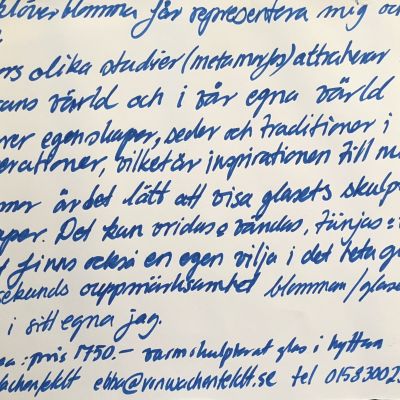 klöverblomma får representera mig oc
ors olika stadier (metamorfos) attraherar
rans värld och i vår egna värld
ver egenskaper, seder och traditioner i
erationer, vilket är inspirationen till m
mer är det lätt att visa glasets skulp
aper. Det kan vridas & vändas, tänjas &
t finns också en egen vilja i det heta g
sekunds ouppmärksamhet blomman/glase
i sitt egna jag.
sa: pris 1750.- varmskulpterat glas i hyttan
Wachenfeldt ebba@vonwachenfeldt.se tel 01583002